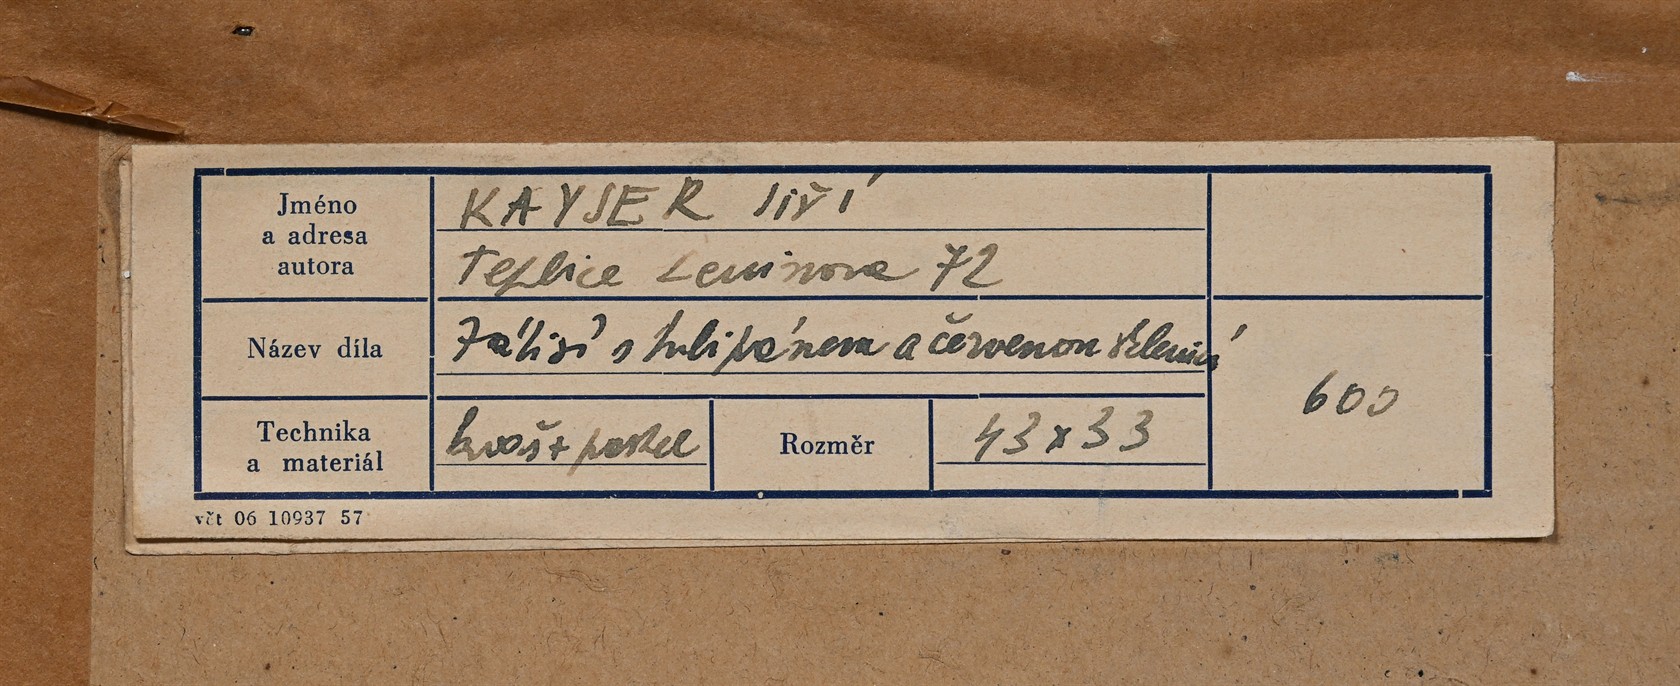 Jméno
a adresa
autora
KAYSER Jiří
Teplice Leninova 72
Název díla
Zátiší s tulipánem a červenou sklenicí
600
Technika
a materiál
kvaš + pastel
Rozměr
43 x 33
včt 06 10937 57